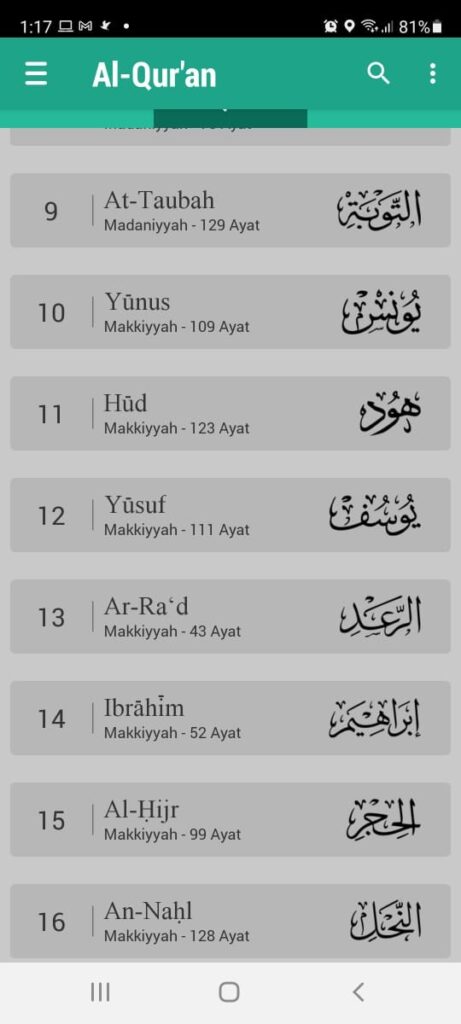 1:17
81%
Al-Qur'an
9
At-Taubah
Madaniyyah - 129 Ayat
التَّوْبَةِ
10
Yūnus
Makkiyyah - 109 Ayat
يُونُسَ
11
Hūd
Makkiyyah - 123 Ayat
هُود
12
Yūsuf
Makkiyyah - 111 Ayat
يُوسُف
13
Ar-Ra‘d
Makkiyyah - 43 Ayat
الرَّعْدِ
14
Ibrāhīm
Makkiyyah - 52 Ayat
إِبْرَاهِيم
15
Al-Ḥijr
Makkiyyah - 99 Ayat
الحِجْرِ
16
An-Naḥl
Makkiyyah - 128 Ayat
النَّحْلِ